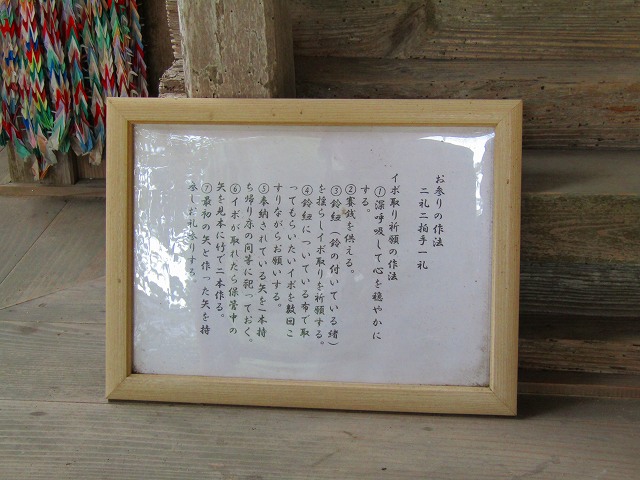 お参りの作法
二礼二拍手一礼
イボ取り祈願の作法
①深呼吸して心を穏やかに
する。
②賽銭を供える。
③鈴紐（鈴の付いている緒）
を揺らしイボ取りを祈願する。
④鈴紐についている布で取
ってもらいたいイボを数回こ
すりながらお願いする。
⑤奉納されている矢を一本持
ち帰り床の間等に祀っておく。
⑥イボが取れたら保管中の
矢を見本に竹で二本作る。
⑦最初の矢と作った矢を持
参しお礼参りする。